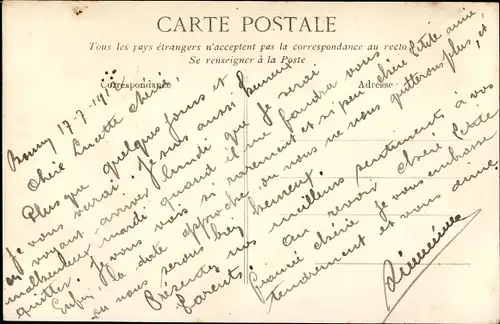 CARTE POSTALE
Tous les pays étrangers n'acceptent pas la correspondance au recto
Se renseigner à la Poste
Correspondance
Adresse
17-7-191
Chère Lucette chérie,
Plus que quelques jours et
je vous verrai. Je suis aussi heureux
en voyant arriver lundi que je serai
malheureux mardi quand il me faudra vous
quitter. Je vous vois si rarement et si peu chère Petite amie,
Enfin, la date approche où nous ne nous quitterons plus, et
où nous serons bien heureux.
Présentez mes meilleurs sentiments à vos
Parents.
Au revoir chère Petite
fiancée chérie je vous embrasse
tendrement et vous aime.